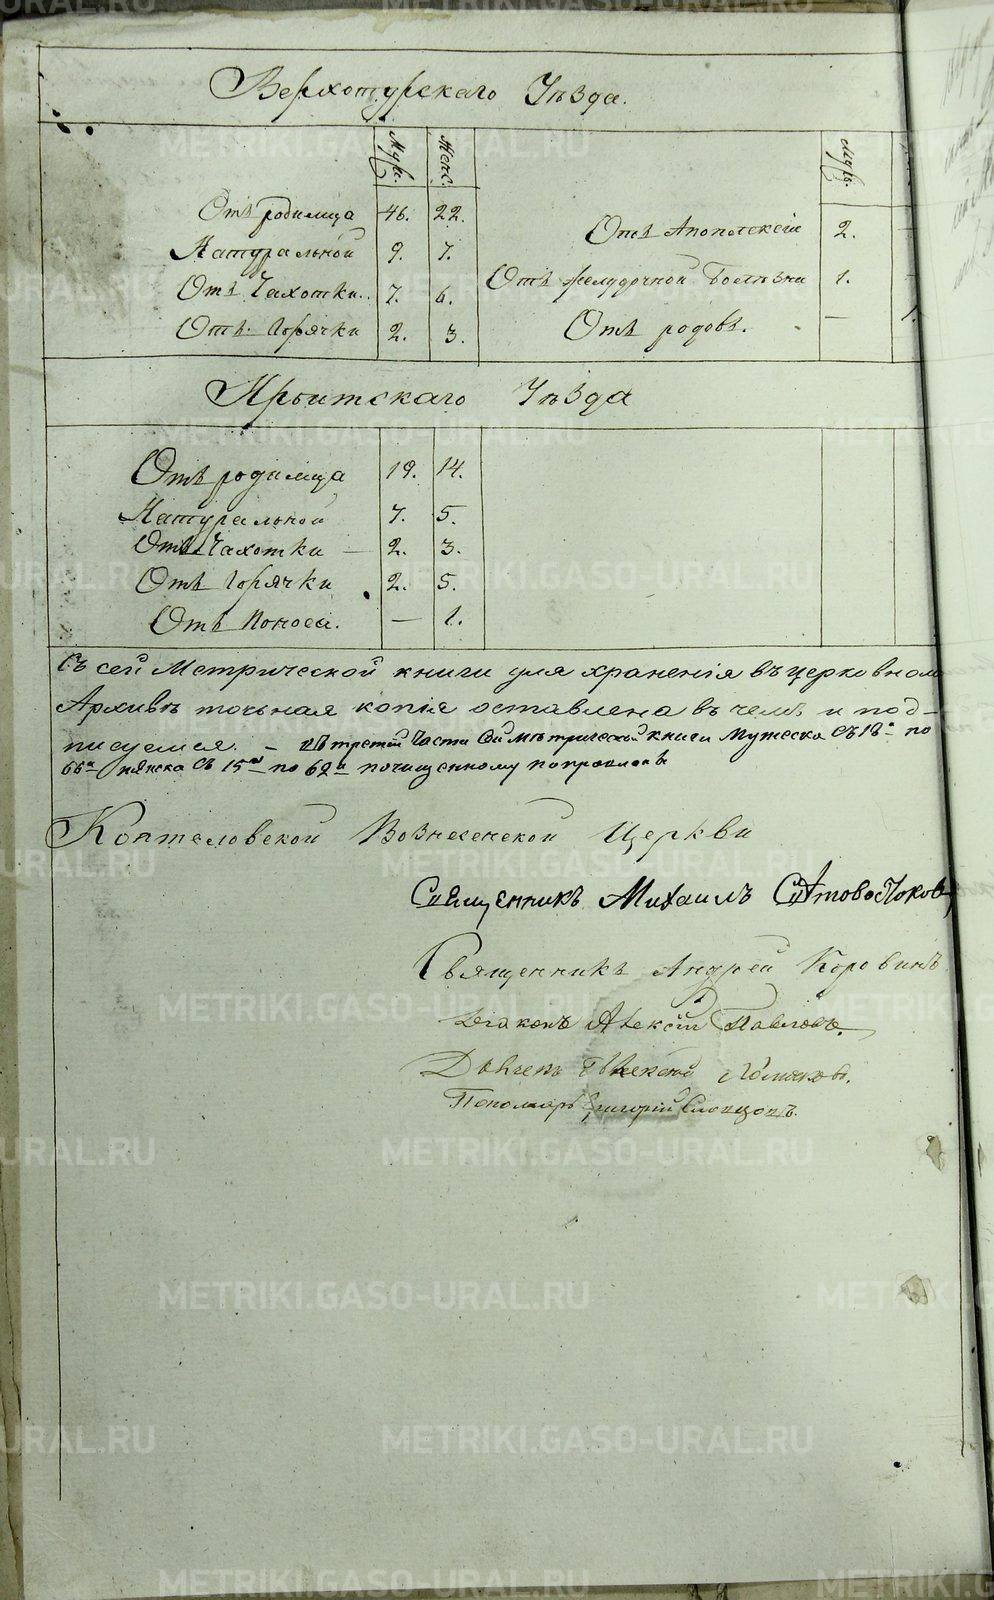 Верхотурскаго Уѣзда.
Муж. Жен. Муж.
Отъ родимца 46. 22.
Натуральной 9. 7.
Отъ Чахотки. 7. 6.
Отъ Горячки 2. 3.
Отъ Апоплексіи 2. —
Отъ желудочной Болѣзни 1. —
Отъ родовъ. — 1.
Ирбитскаго Уѣзда
Отъ родимца 19. 14.
Натуральной 7. 5.
Отъ Чахотки — 2. 3.
Отъ Горячки 2. 5.
Отъ Поноса. — 1.
Съ сей Метрической книги для храненія въ церковном
Архивѣ точьная копія оставлена въ чемъ и под-
писуемся. – въ третей части сей метрической книги Мужеска съ 18 по
66 женска съ 15 по 62 почищенному
Коптеловской Вознесенской Церкви
Священникъ Михаилъ Святовостоковъ
Священникъ Андрей Коровинъ
Діаконъ Алексій Павловъ.
Дьячекъ
Пономарь Григорій Словцовъ.
METRIKI.GASO-URAL.RU